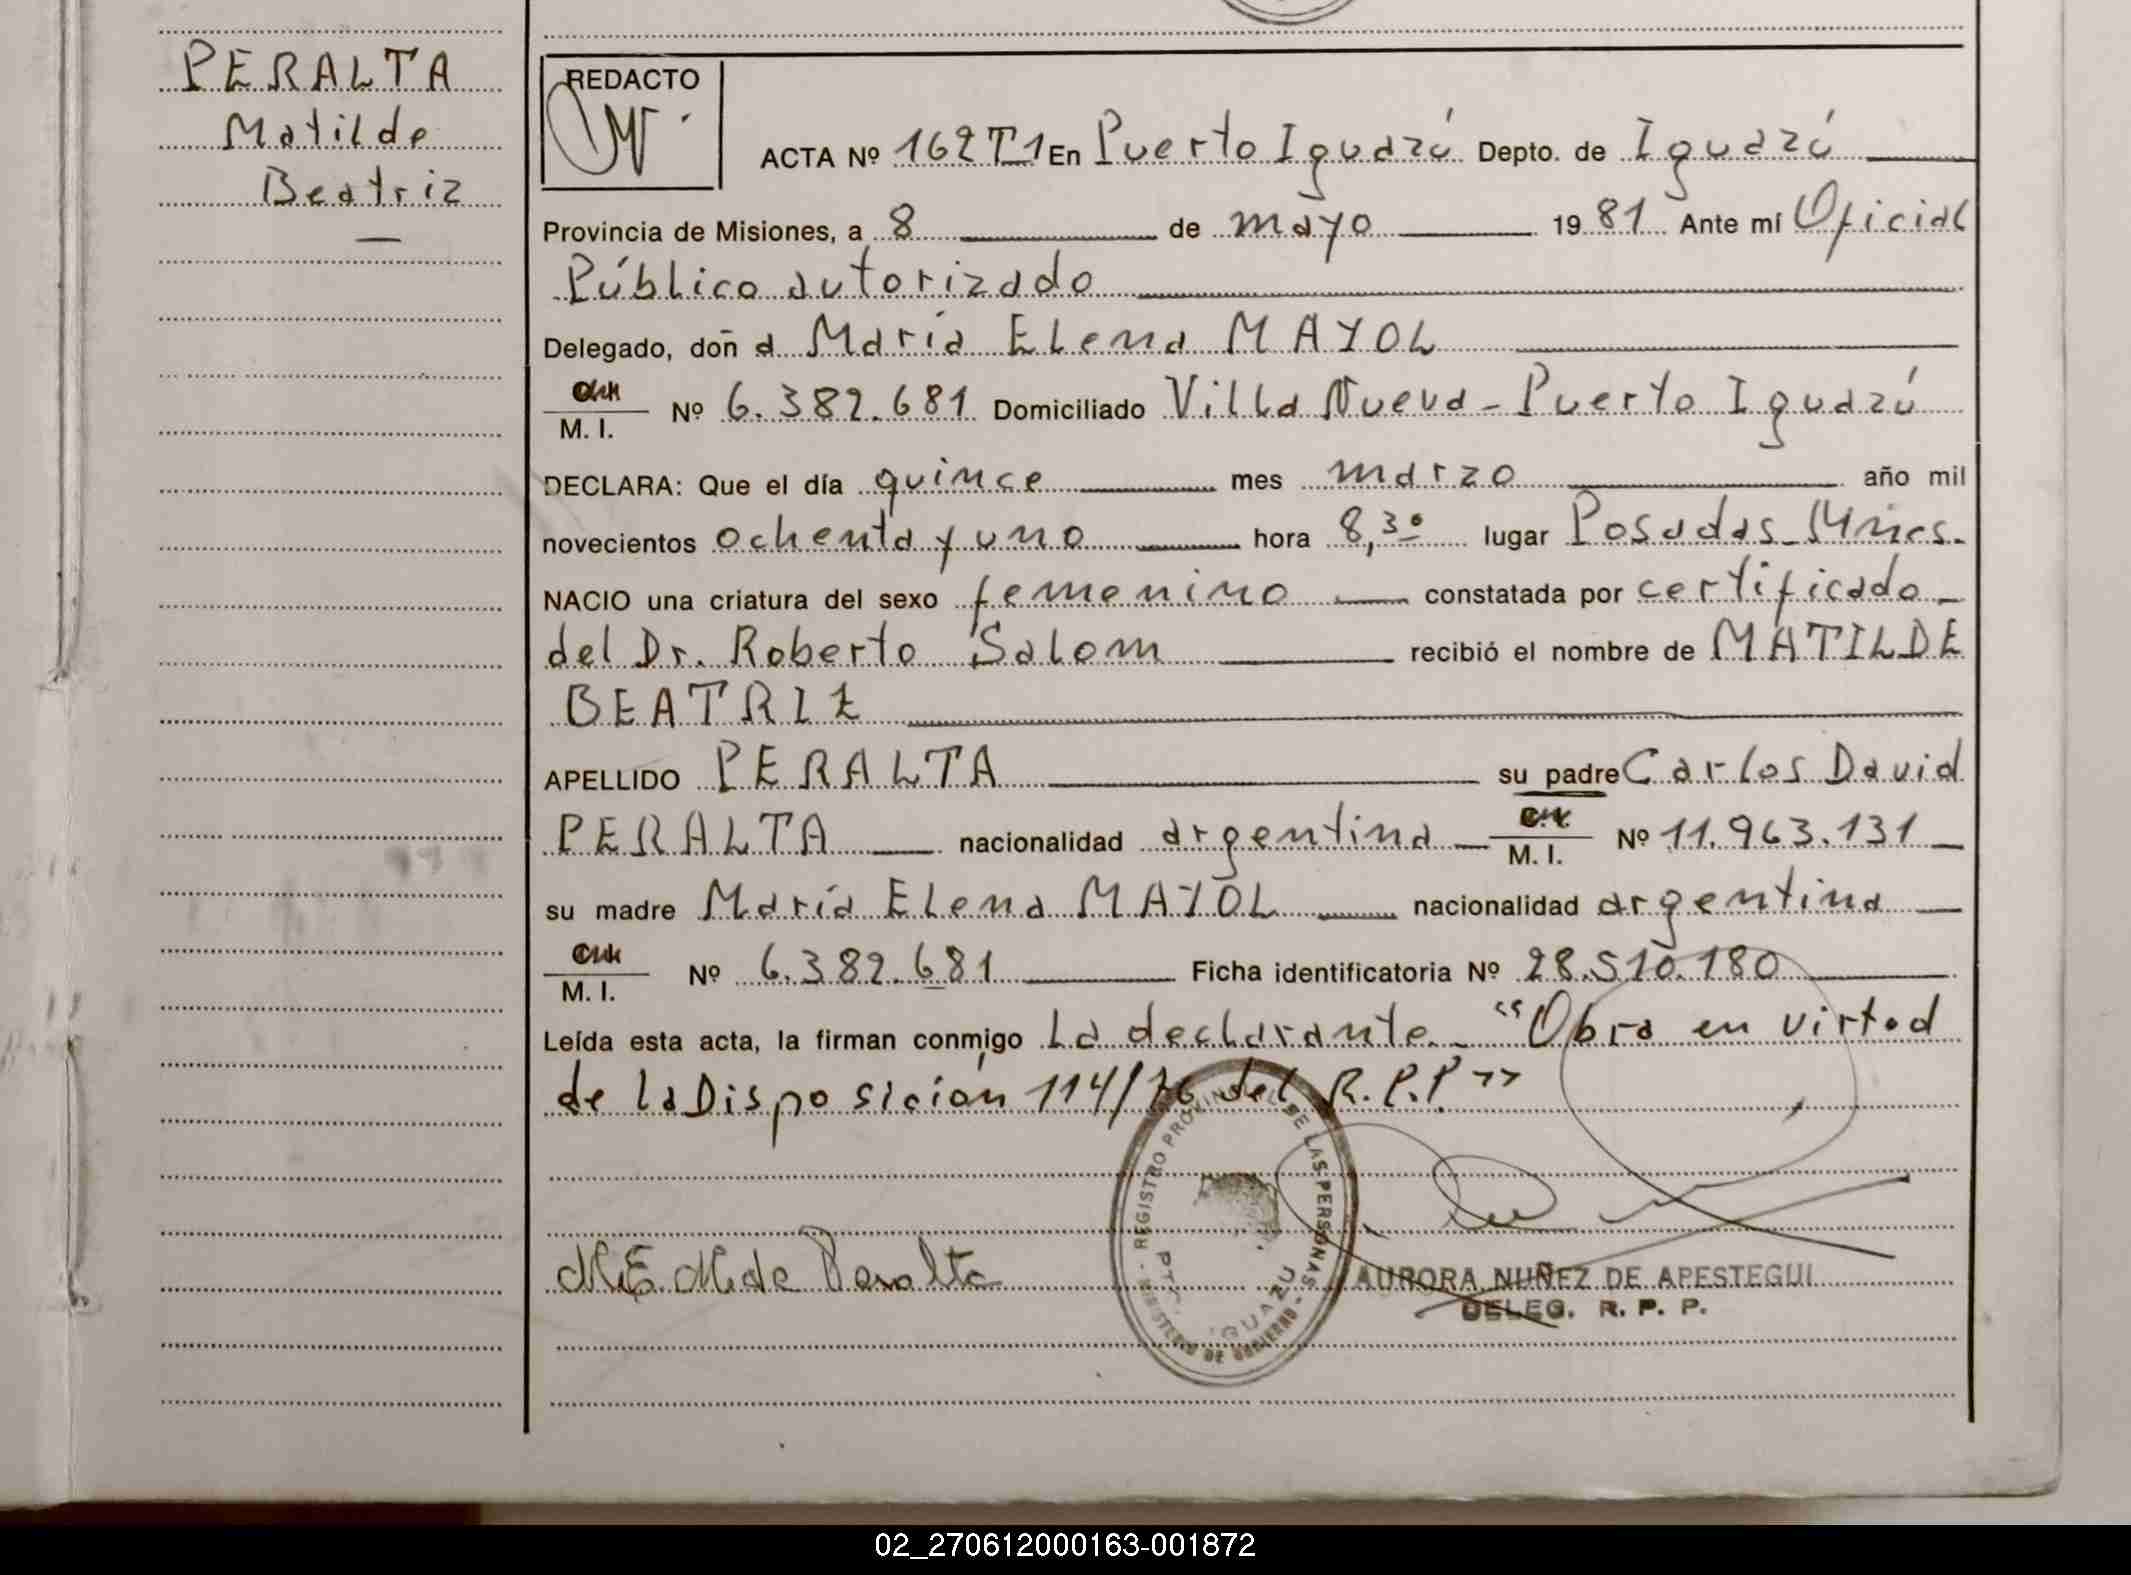 PERALTA
Matilde
Beatriz
REDACTO
ACTA Nº 162 T1 En Puerto Iguazú Depto. de Iguazú
Provincia de Misiones, a 8 de mayo 1981 Ante mí Oficial
Público autorizado
Delegado, doña María Elena MAYOL
M. I. Nº 6.382.681 Domiciliado Villa Nueva - Puerto Iguazú
DECLARA: Que el día quince mes marzo año mil
novecientos ochenta y uno hora 8,30 lugar Posadas Mnes.
NACIO una criatura del sexo femenino constatada por certificado
del Dr. Roberto Salom recibió el nombre de MATILDE
BEATRIZ
APELLIDO PERALTA su padre Carlos David
PERALTA nacionalidad argentina M. I. Nº 11.963.131
su madre María Elena MAYOL nacionalidad argentina
M. I. Nº 6.382.681 Ficha identificatoria Nº 28.510.180
Leída esta acta, la firman conmigo la declarante. "Obra en virtud
de la Disposición 114/76 del R.P.P"
REGISTRO PROVINCIAL DE LAS PERSONAS
MINISTERIO DE GOBIERNO
PTO. IGUAZU
M E M de Peralta
AURORA NUÑEZ DE APESTEGUI
DELEG. R. P. P.
02_270612000163-001872